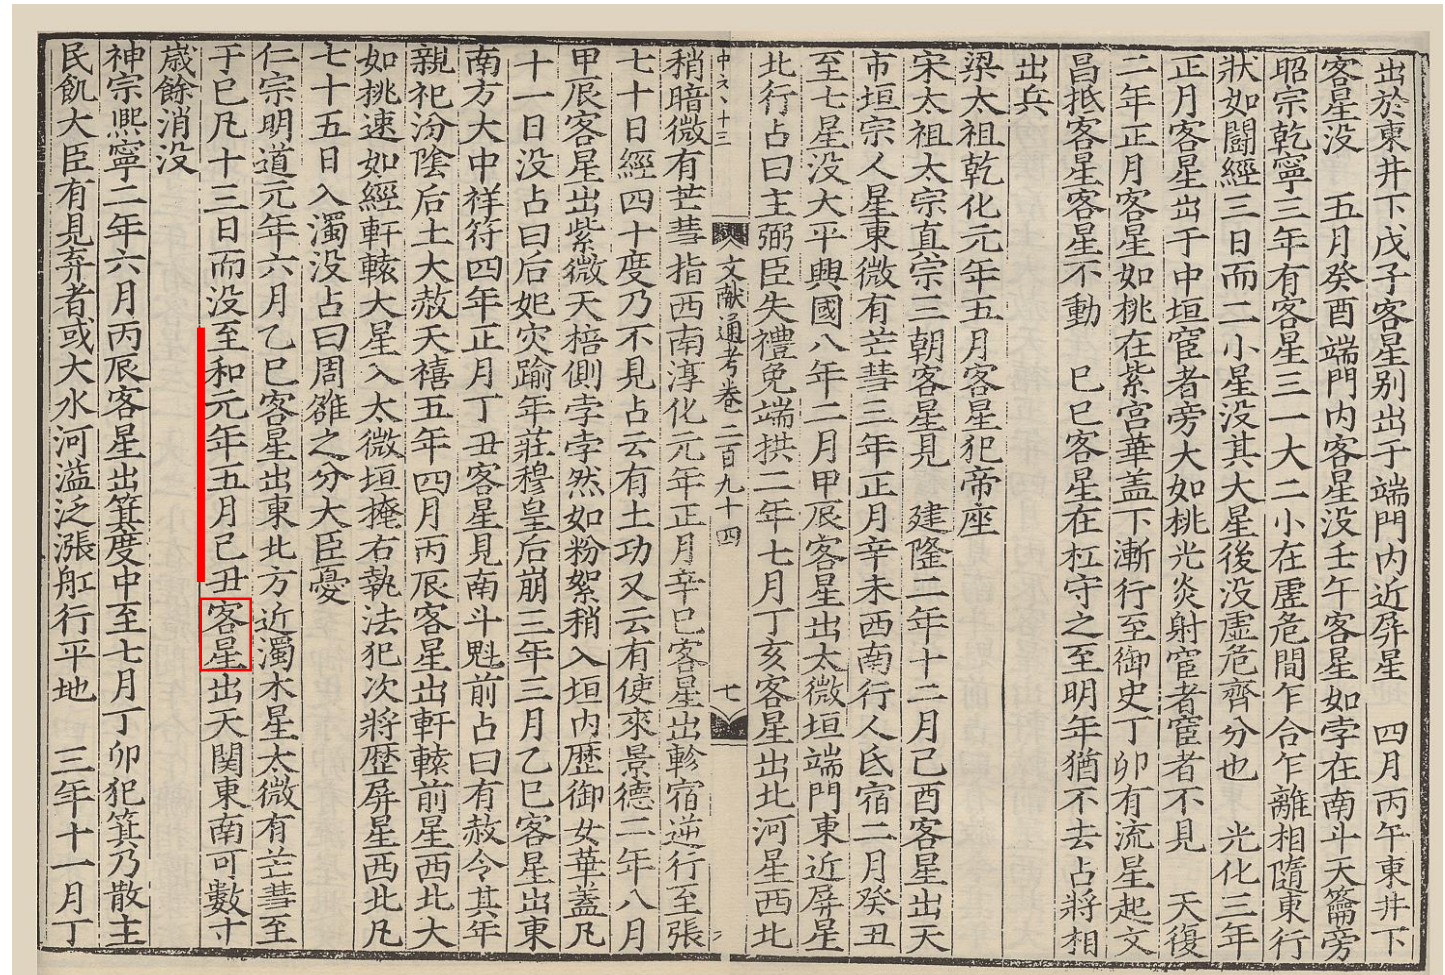 出於東井下戊子客星別出于端門内近屏星　四月丙午東井下
客星没　五月癸酉端門内客星没壬午客星如孛在南斗天籥旁
昭宗乾寧三年有客星三一大二小在虚危間乍合乍離相隨東行
狀如鬭經三日而二小星没其大星後没虚危齊分也　光化三年
正月客星出于中垣宦者旁大如桃光炎射宦者宦者不見　天復
二年正月客星如桃在紫宮華蓋下漸行至御史丁卯有流星起文
昌抵客星客星不動　巳巳客星在杠守之至明年猶不去占將相
出兵
梁太祖乾化元年五月客星犯帝座
宋太祖太宗真宗三朝客星見　建隆二年十二月己酉客星出天
市垣宗人星東微有芒彗三年正月辛未西南行入氐宿二月癸丑
至七星没大平興國八年二月甲辰客星出太微垣端門東近屏星
北行占曰主弼臣失禮免端拱二年七月丁亥客星出北河星西北
文献通考卷二百九十四　七
稍暗微有芒彗指西南淳化元年正月辛巳客星出軫宿逆行至張
七十日經四十度乃不見占云有土功又云有使來景德二年八月
甲辰客星出紫微天棓側孛孛然如粉絮稍入垣内歷御女華蓋凡
十一日没占曰后妃灾踰年莊穆皇后崩三年三月乙巳客星出東
南方大中祥符四年正月丁丑客星見南斗魁前占曰有赦令其年
親祀汾陰后土大赦天禧五年四月丙辰客星出軒轅前星西北大
如桃速如經軒轅大星入太微垣掩右執法犯次將歷屏星西北凡
七十五日入濁没占曰周雒之分大臣憂
仁宗明道元年六月乙巳客星出東北方近濁木星太微有芒彗至
于巳凡十三日而没至和元年五月己丑客星出天関東南可數寸
嵗餘消没
神宗熈寧二年六月丙辰客星出箕度中至七月丁卯犯箕乃散主
民飢大臣有見弃者或大水河溢泛漲舡行平地　三年十一月丁